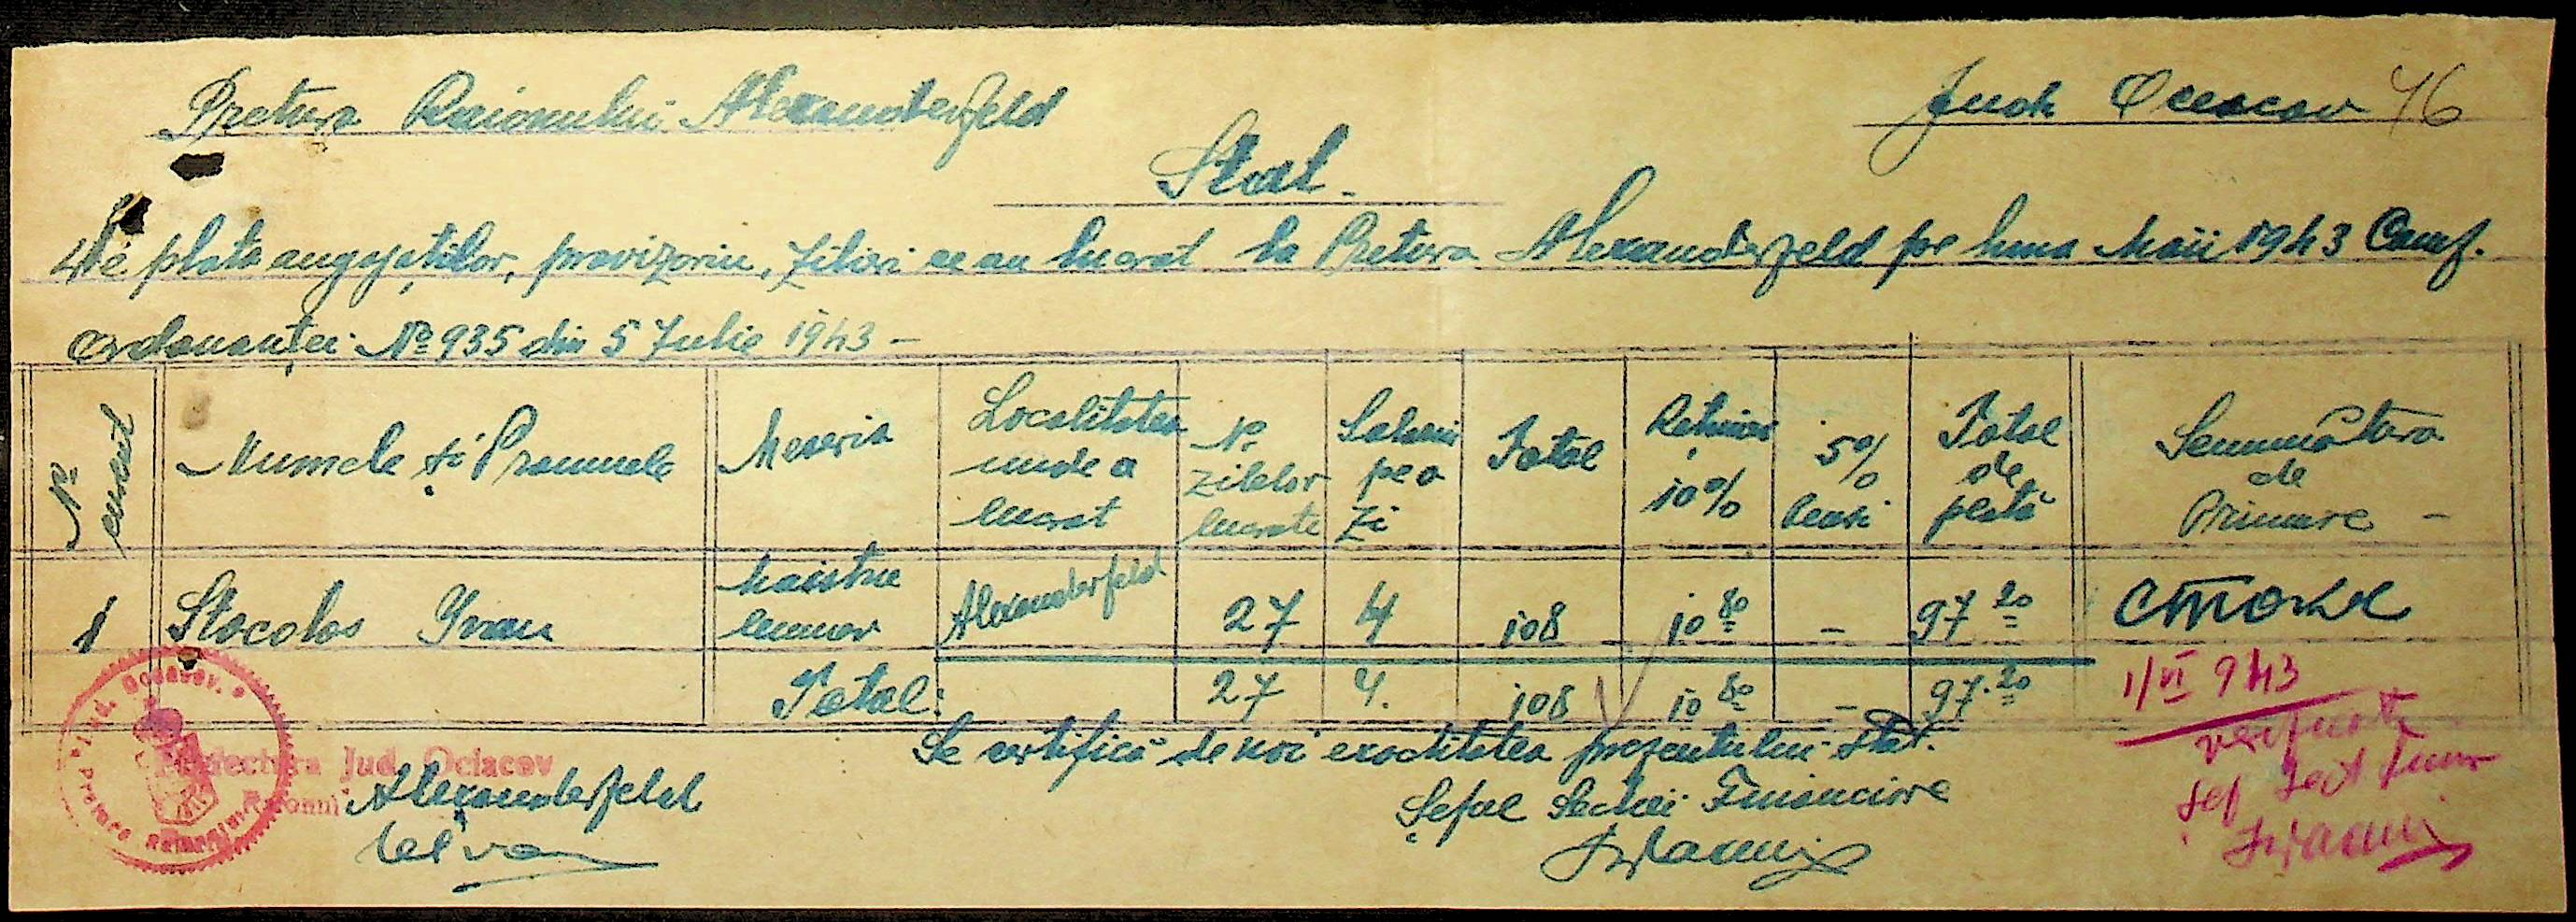 Pretura Raionului Alexanderfeld
Jud. Oceacov 46
Stat
De plata angajaților, provizorii, zilieri ce au lucrat la Pretura Alexanderfeld pe luna Maii 1943 Conf.
Ordonanței No 935 din 5 Iulie 1943 –
No curent
Numele și Pronumele
Meseria
Localitatea unde a lucrat
No zilelor lucrate
Salariu pe o zi
Total
Retineri 10%
5%
Total de plată
Semnătura de Primire –
1 Stocolos Ivan Maistru Alexanderfeld 27 4 108 10 80 – 97 20 Стокол
Total: 27 4. 108 10 80 – 97.20
1/VI 943
Se certifică de noi exactitatea prezentului stat.
Prefectura Jud. Ociacov
Raionul Alexanderfeld
Șeful Secției Financiare
verificat
Șef Sect Finan